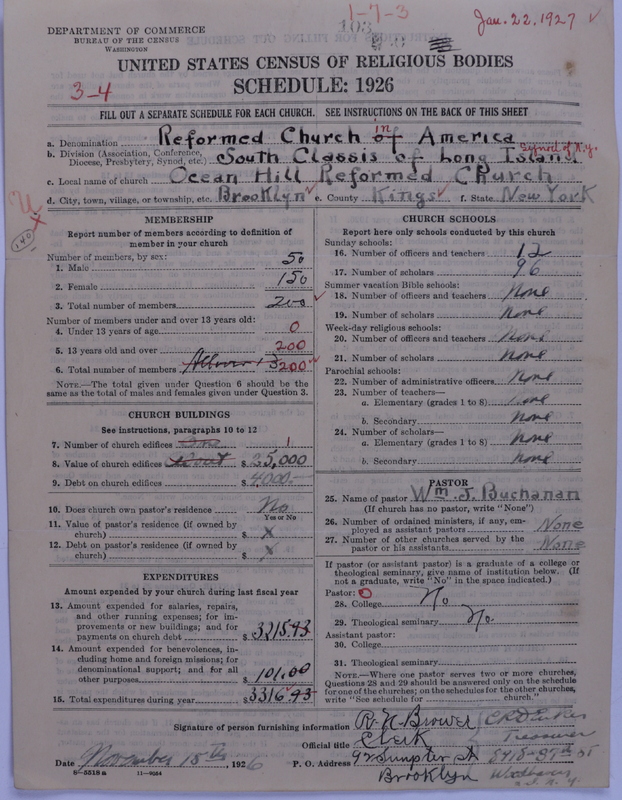 1-7-3
103
Jan. 22, 1927 ✓
DEPARTMENT OF COMMERCE
BUREAU OF THE CENSUS
WASHINGTON
UNITED STATES CENSUS OF RELIGIOUS BODIES
3-4
SCHEDULE: 1926
FILL OUT A SEPARATE SCHEDULE FOR EACH CHURCH. SEE INSTRUCTIONS ON THE BACK OF THIS SHEET
a. Denomination Reformed Church in America
b. Division (Association, Conference, Diocese, Presbytery, Synod, etc.) South Classis of Long Island Synod of N.Y.
c. Local name of church Ocean Hill Reformed Church
d. City, town, village, or township, etc. Brooklyn ✓ e. County Kings ✓ f. State New York
140
MEMBERSHIP
Report number of members according to definition of
member in your church
Number of members, by sex:
1. Male 50
2. Female 150
3. Total number of members 200 ✓
Number of members under and over 13 years old:
4. Under 13 years of age 0
5. 13 years old and over 200
6. Total number of members All over 13 200 ✓
NOTE.—The total given under Question 6 should be the
same as the total of males and females given under Question 3.
CHURCH BUILDINGS
See instructions, paragraphs 10 to 12
7. Number of church edifices One 1
8. Value of church edifices About $ 35,000
9. Debt on church edifices $ 4000.—
10. Does church own pastor's residence No
Yes or No
11. Value of pastor's residence (if owned by
church) $ x
12. Debt on pastor's residence (if owned by
church) $ x
EXPENDITURES
Amount expended by your church during last fiscal year
13. Amount expended for salaries, repairs,
and other running expenses; for im-
provements or new buildings; and for
payments on church debt $ 3215.93
14. Amount expended for benevolences, in-
cluding home and foreign missions; for
denominational support; and for all
other purposes $ 101.00
15. Total expenditures during year $ 3316.93
CHURCH SCHOOLS
Report here only schools conducted by this church
Sunday schools:
16. Number of officers and teachers 12
17. Number of scholars 96
Summer vacation Bible schools:
18. Number of officers and teachers None
19. Number of scholars None
Week-day religious schools:
20. Number of officers and teachers None
21. Number of scholars None
Parochial schools:
22. Number of administrative officers None
23. Number of teachers—
a. Elementary (grades 1 to 8) None
b. Secondary None
24. Number of scholars—
a. Elementary (grades 1 to 8) None
b. Secondary None
PASTOR
25. Name of pastor Wm. J. Buchanan
(If church has no pastor, write "None")
26. Number of ordained ministers, if any, em-
ployed as assistant pastors None
27. Number of other churches served by the
pastor or his assistants None
If pastor (or assistant pastor) is a graduate of a college or
theological seminary, give name of institution below. (If
not a graduate, write "No" in the space indicated.)
Pastor: 0
28. College No
29. Theological seminary No.
Assistant pastor:
30. College
31. Theological seminary
NOTE.—Where one pastor serves two or more churches,
Questions 28 and 29 should be answered only on the schedule
for one of the churches; on the schedules for the other churches,
write "See schedule for church."
Signature of person furnishing information R. N. Brower
Official title Clerk Treasurer
Date November 15th, 1926 P. O. Address 92 Sumpter St
Brooklyn
8—5518a 11—8034